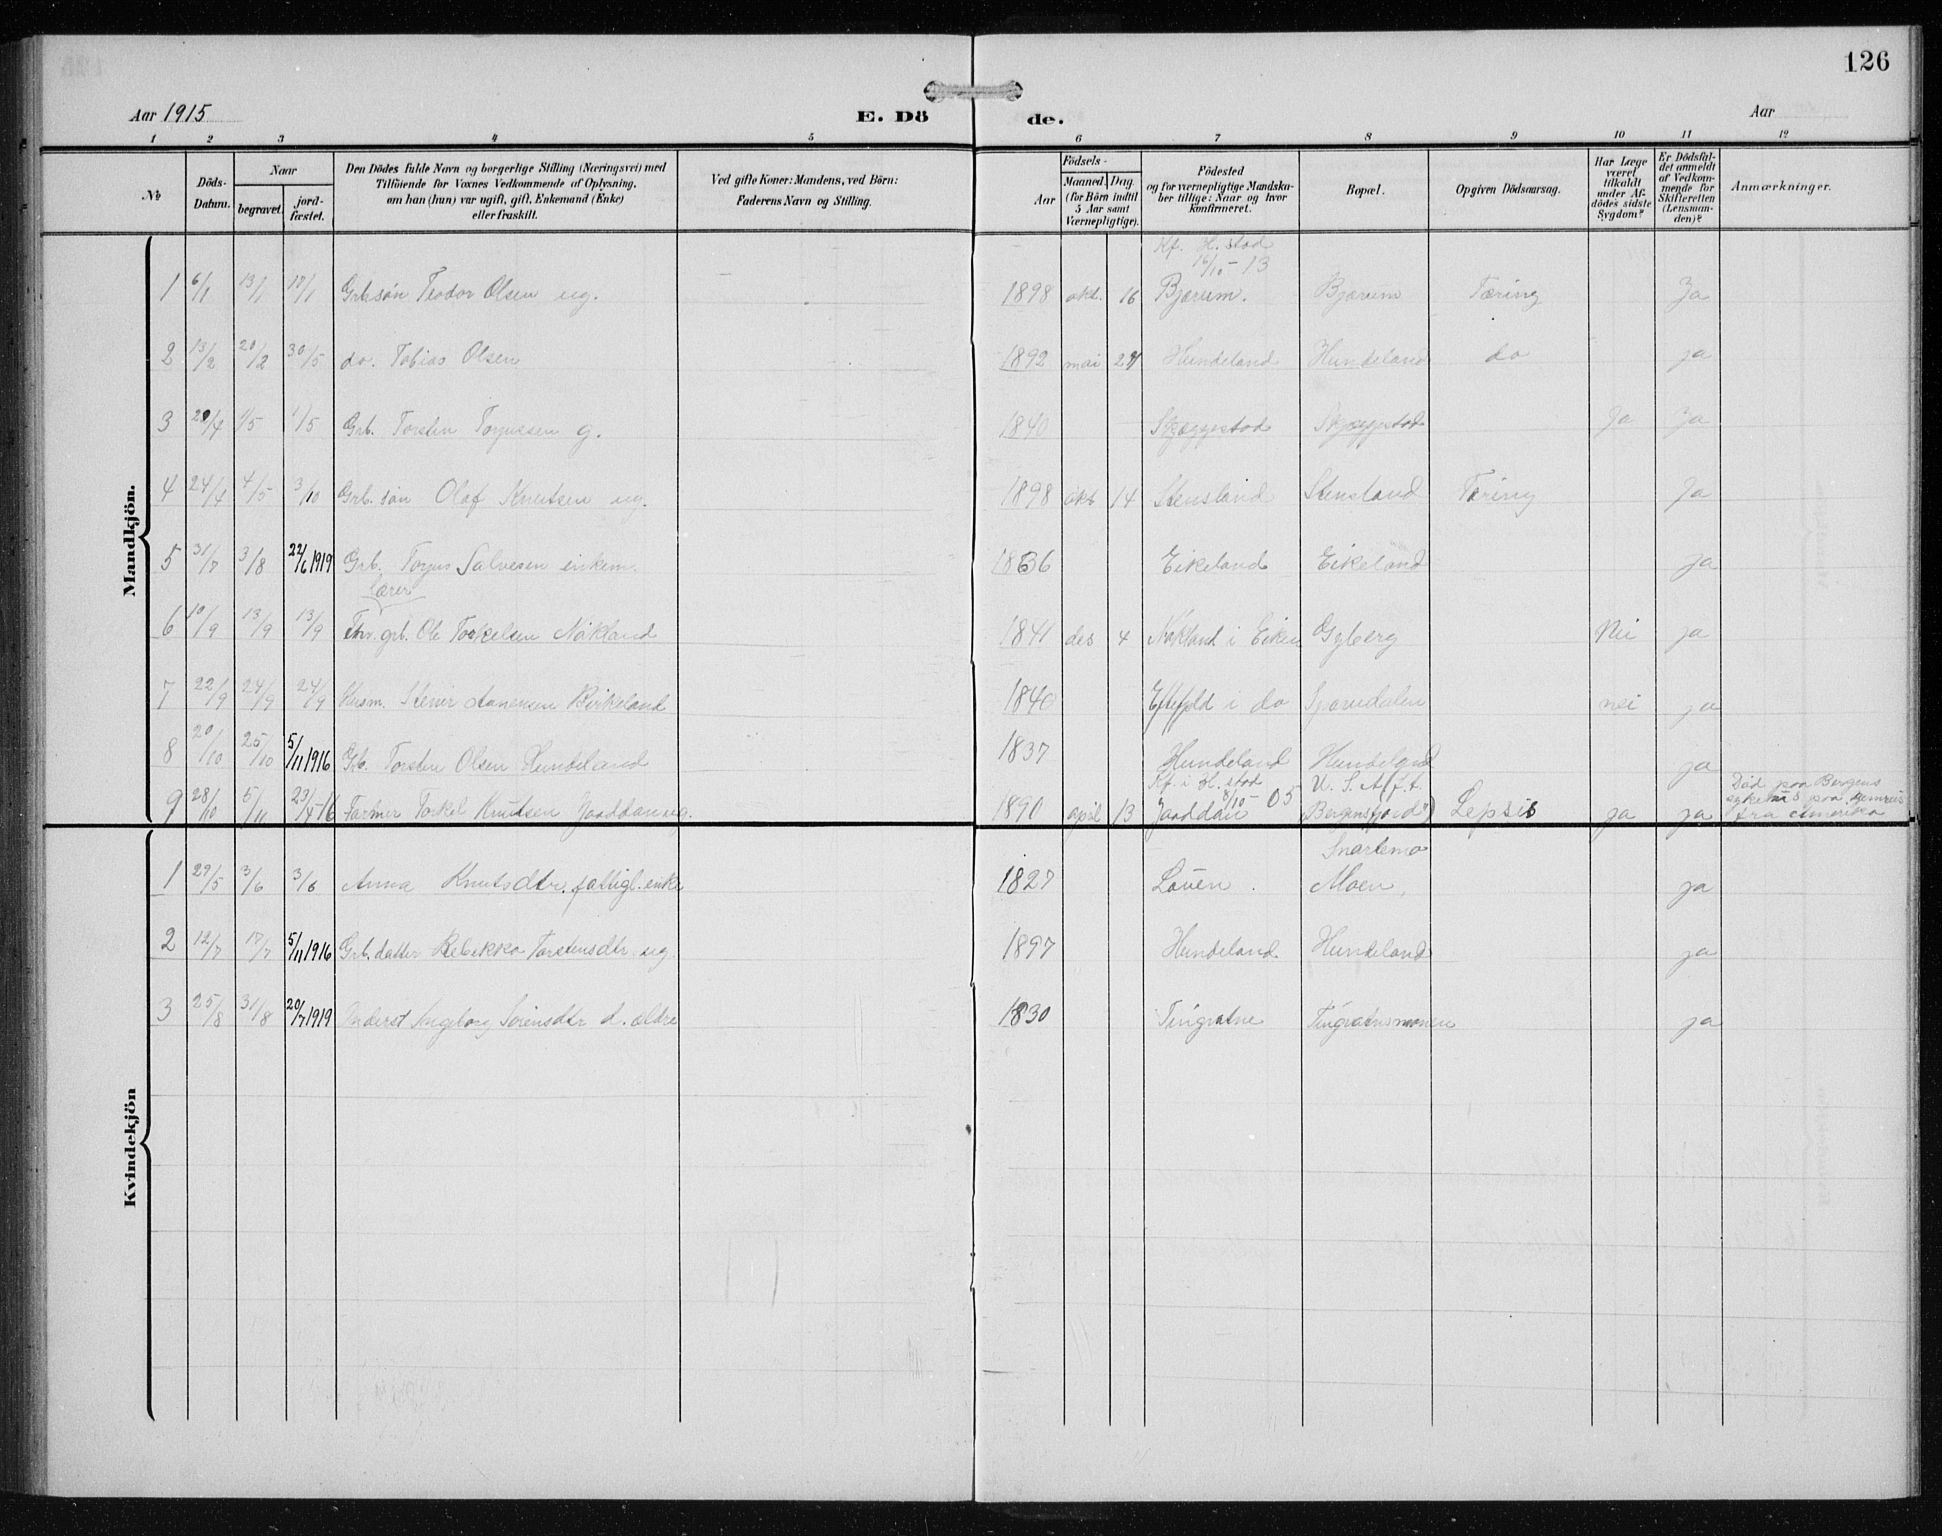 126
Aar 1915
E. Dö de.
Aar
1 2 3 4 5 6 7 8 9 10 11 12
No
Döds-Datum.
Naar
begravet.
jord-fæstet.
Den Dödes fulde Navn og borgerlige Stilling (Næringsvei) med
Tilföiende for Voxnes Vedkommende af Oplysning,
om han (hun) var ugift, gift, Enkemand (Enke)
eller fraskilt.
Ved gifte Koner: Mandens, ved Börn:
Faderens Navn og Stilling.
Födsels-
Aar
Maaned. Dag
(for Börn indtil
5 Aar samt
Værnepligtige).
Födested
og for værnepligtige Mandska-
ber tillige: Naar og hvor
konfirmeret.
Bopæl.
Opgiven Dödsaarsag.
Har Læge
været
tilkaldt
under Af-
dödes sidste
Sygdom?
Er Dödsfal-
det anmeldt
af Vedkom-
mende for
Skifteretten
(Lensman-
den)?
Anmærkninger.
Mandkjön.
Kf. H.stad
16/10 - 13
1 6/1 13/1 17/1 Grb.søn Teodor Olsen ug. 1898 okt. 16 Bjærum. Bjærum Tæring Ja
2 13/2 20/2 30/5 do. Tobias Olsen 1892 mai 24 Hundeland Hundeland do ja
3 20/4 1/5 1/5 Grb. Torsten Torjussen g. 1840 Skjæggestad Skjæggestad Ja Ja
4 24/4 4/5 3/10 Grb. søn Olaf Knutsen ug. 1898 okt 14 Stensland Stensland Tæring Ja
5 31/7 3/8 22/6 1919 Grb. Torjus Salvesen enkem. 1836 Eikeland Eikeland ja
lærer
6 10/9 13/9 13/9 Fhv. grb. Ole Torkelsen Nakland 1841 des 4 Nakland i Eiken Gyberg Nei ja
7 22/9 24/9 24/9 Husm. Stener Aanensen Birkeland 1840 Eftefjeld i do nei ja
8 20/10 25/10 5/11 1916 Grb. Torsten Olsen Hundeland 1837 Hundeland Hundeland ja
Kf. i H.stad
8/10 - 05
U. S. A.
9 28/10 5/11 23/4-16 Farmer Torkel Knutsen Jaaddan ug. 1890 april 13 Jaaddan Bergensfjord") Lepsis ja ja
Död paa Bergens
sykehus paa hjemreis
fra Amerika
Kvindekjön
1 29/5 3/6 3/6 Anna Knutsdtr. fattigl. enke 1827 Lauen. Snartemo
Moen, ja
2 12/7 17/7 5/11 1916 Grb. datter Rebekka Torstensdtr ug. 1897 Hundeland Hundeland ja
3 25/8 31/8 20/7 1919 Underst. Ingeborg Sörensdtr d. ældre 1830 Tingvatne Tingvatnsmonen ja